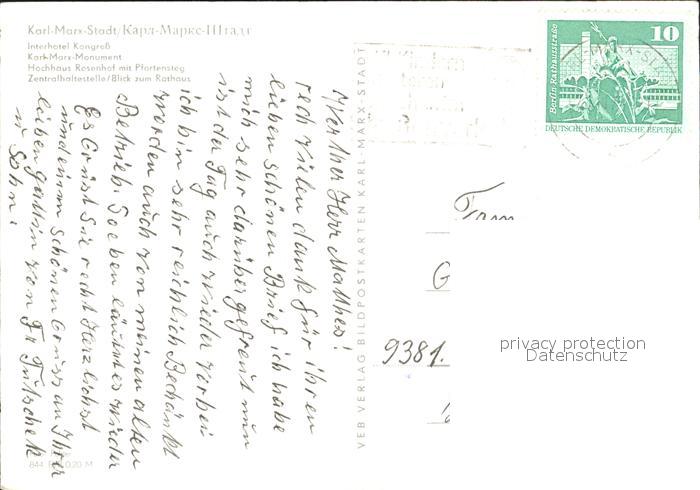 Karl-Marx-Stadt/Карл-Маркс-Штадт
Interhotel Kongreß
Karl-Marx-Monument
Hochhaus Rosenhof mit Pfortensteg
Zentralhaltestelle/Blick zum Rathaus
Herr Matthes!
recht vielen dank für ihren
lieben schönen Brief ich habe
mich sehr darüber gefreut nun
ist der Tag auch wieder vorbei
ich bin sehr reichlich Beschänkt
worden auch von meinen alten
Betrieb. Soeben läutet es wieder
Es Grüst Sie recht Herzlichst
und einen schönen Gruss an Ihrer
lieben gattin von Fr.
u. Sohn!
VEB VERLAG BILDPOSTKARTEN KARL-MARX-STADT
10
Berlin, Rathausstraße
DEUTSCHE DEMOKRATISCHE REPUBLIK
Fam
G
9381.
privacy protection
Datenschutz
0,20 M